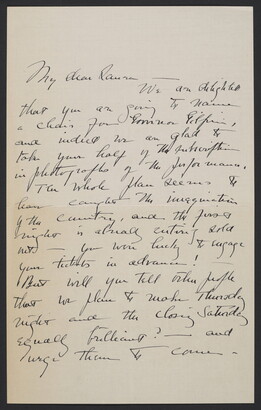 My dear Ranson —
We are delighted
that you are going to name
a chair for Governor Gilpin,
and indeed we are glad to
take your half of the subscription
in photographs of the performance.
The whole plan seems to
have caught the imagination
of the country, and the first
night is already entirely sold
out — you were lucky to engage
your tickets in advance!
But will you tell other people
that we plan to make Thursday
night and the closing Saturday
equally brilliant? — and
urge them to come —